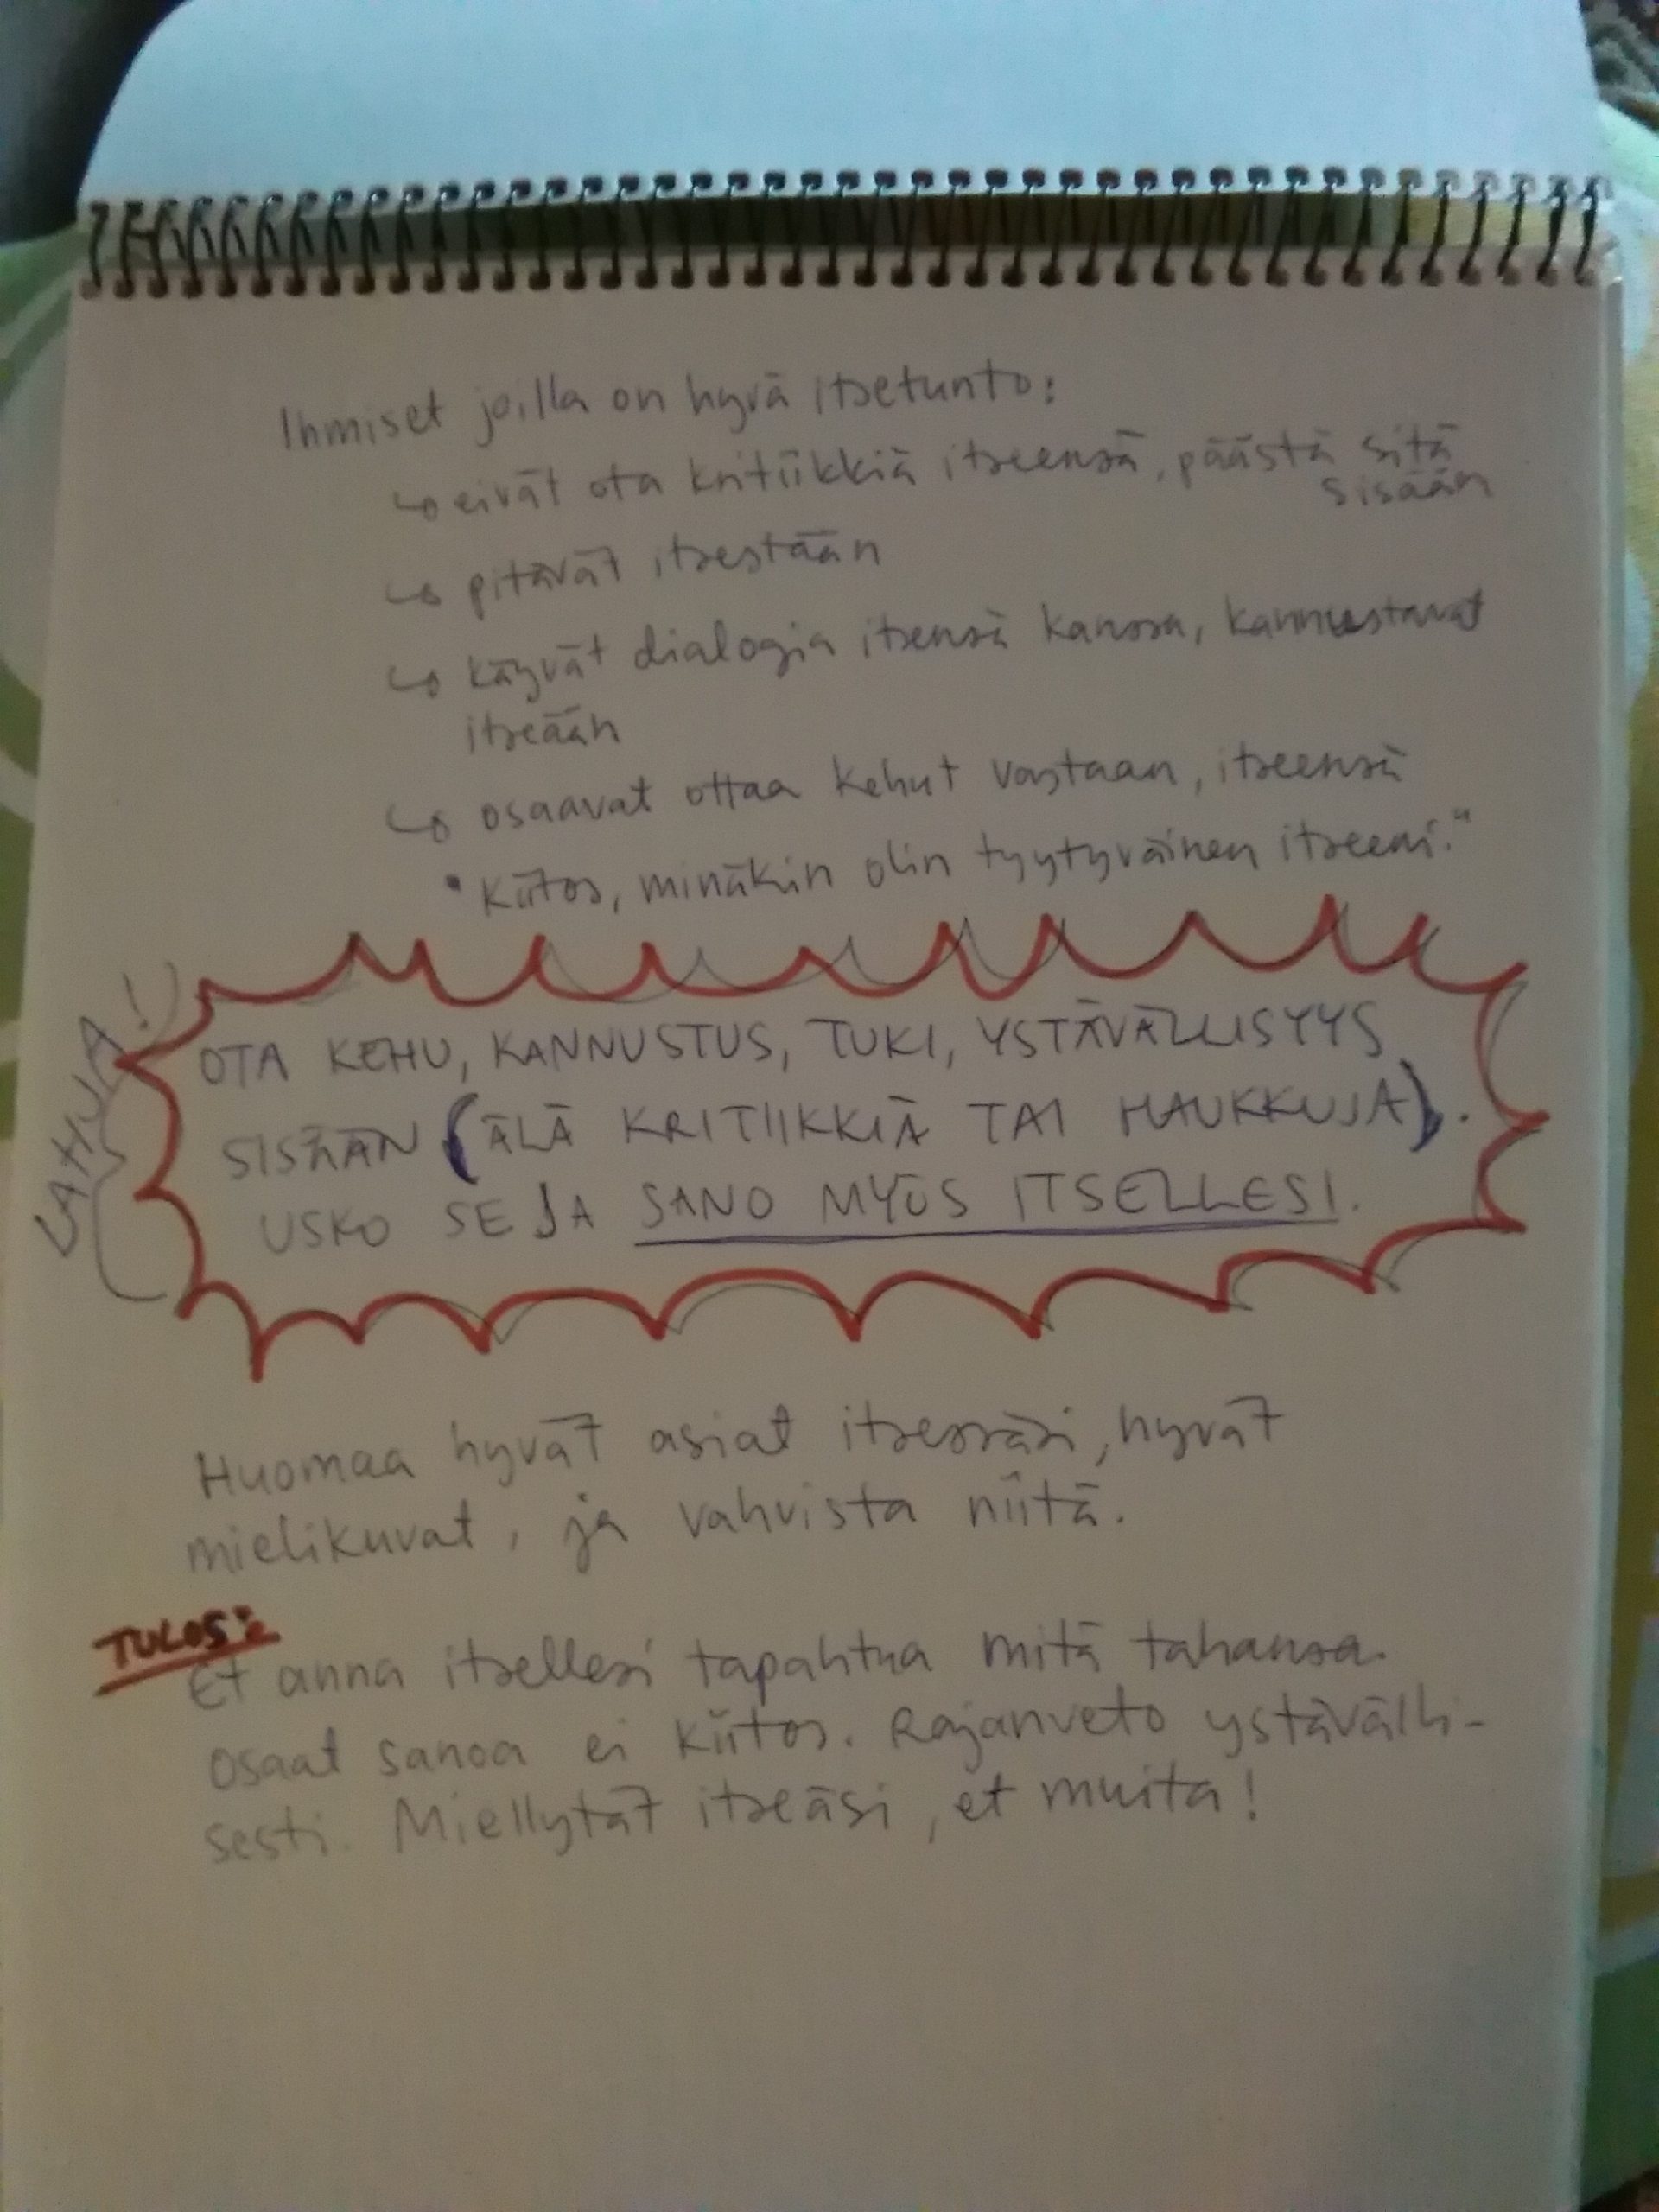 Ihmiset joilla on hyvä itsetunto:
↪ eivät ota kritiikkiä itseensä, päästä sitä
sisään
↪ pitävät itsestään
↪ käyvät dialogia itsensä kanssa, kannustavat
itseään
↪ osaavat ottaa kehut vastaan, itseensä
"Kiitos, minäkin olin tyytyväinen itseeni."
LAHJA!
OTA KEHU, KANNUSTUS, TUKI, YSTÄVÄLLISYYS
SISÄÄN (ÄLÄ KRITIIKKIÄ TAI HAUKKUJA).
USKO SE JA SANO MYÖS ITSELLESI.
Huomaa hyvät asiat itsessäsi, hyvät
mielikuvat, ja vahvista niitä.
TULOS:
Et anna itsellesi tapahtua mitä tahansa.
Osaat sanoa ei kiitos. Rajanveto ystävälli-
sesti. Miellytät itseäsi, et muita!